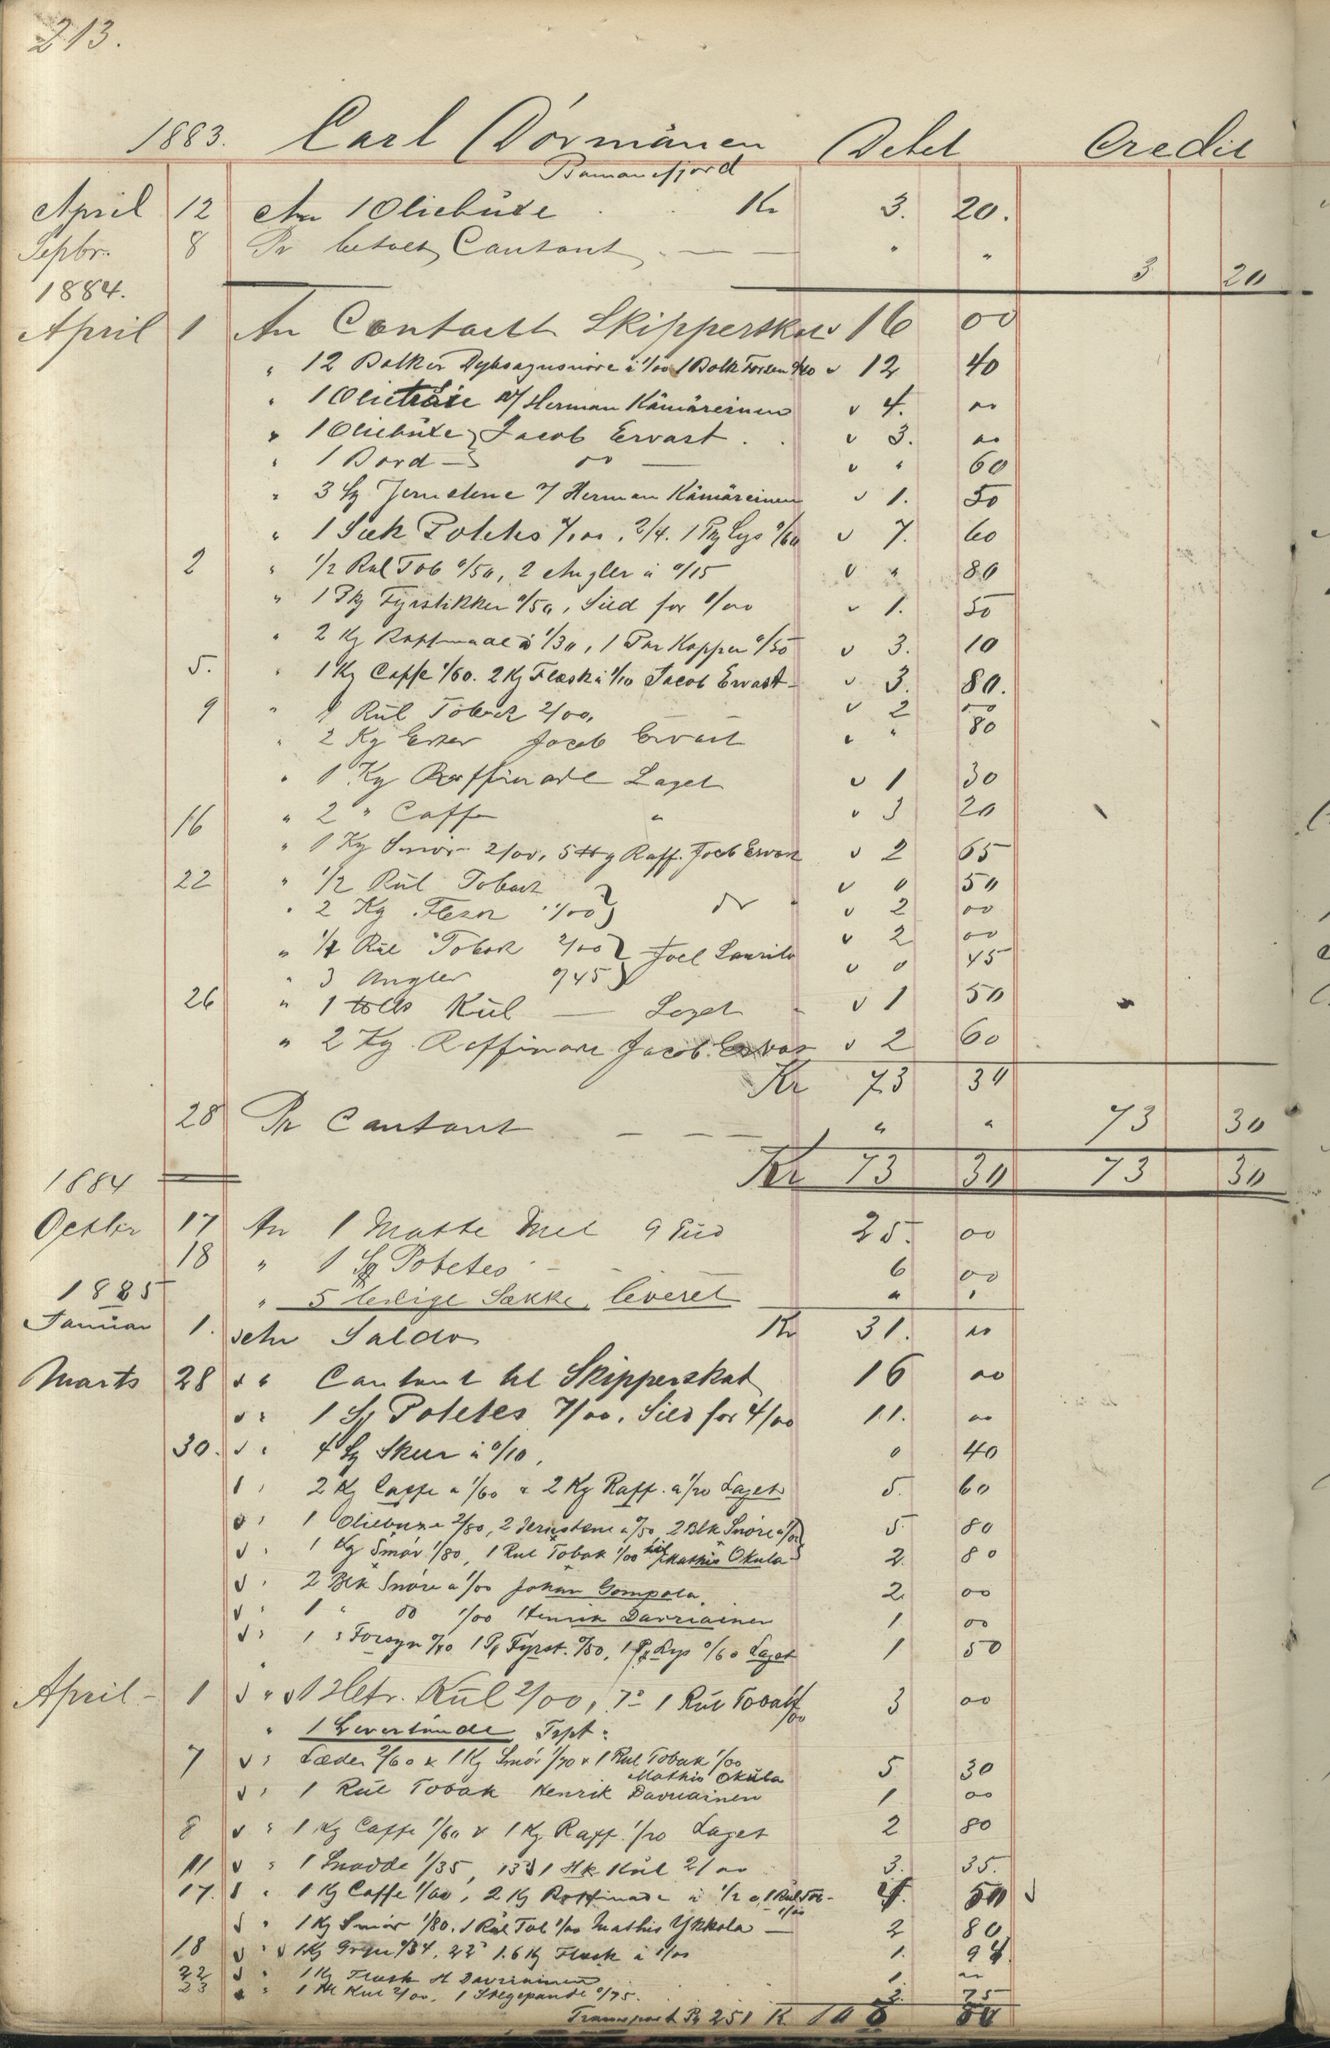 213.
1883. Carl Dörmänen Debet Credit
April 12 An 1 Oliebüxe Kr 3. 20.
Septbr. 8 Pr betalt Contant — — " " 3 20
1884.
April 1 An Contant Skipperskat v 16 00
" 12 Bolker à 1/00 1 Bolk v 12 40
" 1 Olietröie a/ Herman Kämäreinen v 4. 00
" 1 Oliebüxe } Jacob Ervast . . v 3. 00
" 1 Bord — } do — v " 60
" 3 Sg Jernstene a/ Herman Kämäreinen v 1. 50
" 1 Sæk Potetes 1 Pkg Lys 0/60 v 7. 60
2 " 1/2 Rul Tob 0/50, 2 Angler à 0/15 v " 80
" 1 Pkg Fyrstikker 0/50, Sild for 1/00 v 1. 50
" 2 Kg Raffinade à 1/30, 1 Par Kopper 0/50 v 3. 10
5. " 1 Kg Caffe 1/60. 2 Kg Flesk à 1/10 Jacob Ervast - v 3. 80.
9 " 1 Rül Tobak 2/00, v 2 00
" 2 Kg Erter Jacob Ervast v " 80
" 1 Kg Raffinade Laget v 1 30
" 2 " Caffe " v 3 20
16 " 1 Kg Smör 2/00, 5 Hg Raff. Jacb Ervast v 2 65
22 " 1/2 Rül Tobak } v 0 50
" 2 Kg Flesk 1/00 } do " v 2 00
" 1 Rül Tobak 2/00 } Joel Laurila v 2 00
" 3 Angler 0/45 } v 0 45
26 " 1 Kül — Laget v 1 50
" 2 Kg Raffinade Jacob Ervast v 2 60
Kr 73 30
28 Pr Contant — — — " " 73 30
Kr 73 30 73 30
1884
Octbr 17 An 1 Matte Mel 9 Pud 25. 00
18 " 1 Sk Potetes - - 6 00
1885 " 5 ledige Sække leveret " "
Januar 1. An Saldo Kr 31. 00
Marts 28 v " Contant til Skipperskat 16 00
v " 1 Sk Potetes 7/00, Sild for 4/00 11. 00
30. v " 4 Sg Skur à 0/10, 0 40
v " 2 Kg Caffe à 1/60 & 2 Kg Raff. à 1/20 Laget 5. 60
v " 1 Oliebuxe 2/80, 2 Jernstene à 0/50, 2 Blk Snöre à 1/00 } 5 80
v " 1 Kg Smör 1/80, 1 Rul Tobak 1/00 til Mathis Okula } 2 80
v " 2 Blk Snöre à 1/00 Johan Gompola 2 00
v " 1 " do 1/00 Henrik Davriainen 1 00
v " 1 " Forsyn 0/40 1 Pk Fyrst. 0/50, 1 Pk Lys 0/60 Laget 1 50
April - 1 v " v 1 Hltr. Kül 2/00, 1 Rül Tobak 1/00 3 00
" 1 Levertünde Tspt "
7 v " Læder 2/60 & 1 Kg Smör 1/70 & 1 Rul Tobak 1/00 Mathis Okula 5 30
v " 1 Rül Tobak Henrik Davriainen 1 00
8 v " 1 Kg Caffe 1/60 & 1 Kg Raff. 1/20 Laget 2 80
11 v " 1 Snadde 1/35, 1 Hk Kül 2/00 3. 35.
17. v " 1 Kg Caffe 1/60, 2 Kg Raffinade à 1/20, 1 Rül Tob- 1/00 50 v
v " 1 Kg Smör 1/80, 1 Rül Tob 1/00 Mathis Ykkola — 2 80
18 v " v 1 Kg Gryn 0/34, 1.6 Kg Flesk à 1/00 1. 94
22 v " 1 Kg Flesk H Davriainen 1. 00
23 v " 1 Hl Kul 2/00, 1 Stegepande 0/75. 2. 75
Transport Pg 251 K